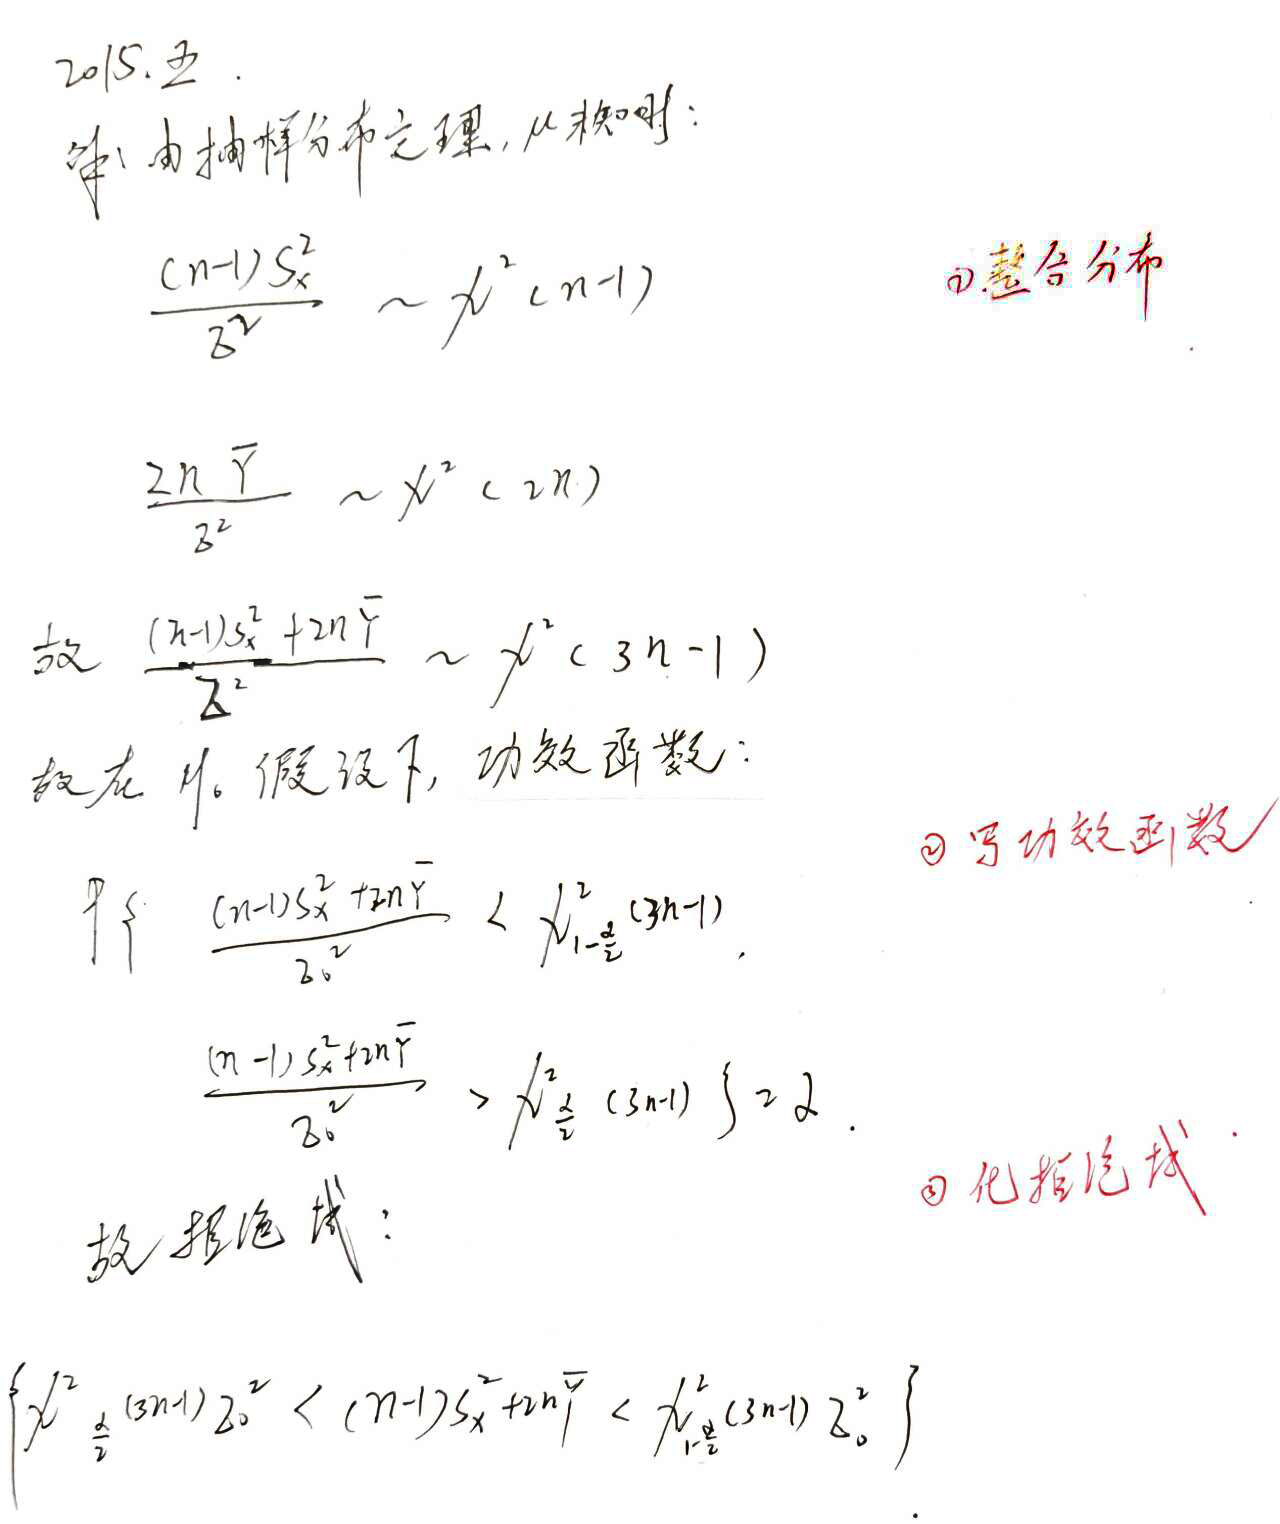 2015.五.
解:由抽样分布定理,μ未知时:
(n-1)S_x^2 / σ^2 ~ χ^2(n-1)
①整合分布
2nȲ / σ^2 ~ χ^2(2n)
故 ((n-1)S_x^2+2nȲ) / σ^2 ~ χ^2(3n-1)
故在H_0假设下,功效函数:
②写功效函数
P{ ((n-1)S_x^2+2nȲ) / σ_0^2 < χ^2_{1-α/2}(3n-1),
((n-1)S_x^2+2nȲ) / σ_0^2 > χ^2_{α/2}(3n-1) } = α.
③化拒绝域
故拒绝域:
{ χ^2_{α/2}(3n-1)σ_0^2 < (n-1)S_x^2+2nȲ < χ^2_{1-α/2}(3n-1)σ_0^2 }.